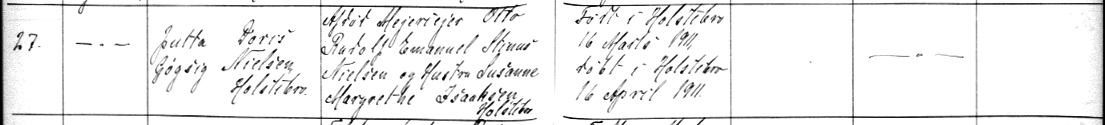 27.
— " —
Jutta Doris
Gøgsig Nielsen
Holstebro.
Afdød Mejeriejer Otto
Rudolf Emanuel Stinus
Nielsen og Hustru Susanne
Margrethe Isaaksen
Holstebro
Født i Holstebro
16 Marts 1911,
døbt i Holstebro
16 April 1911.
— " —